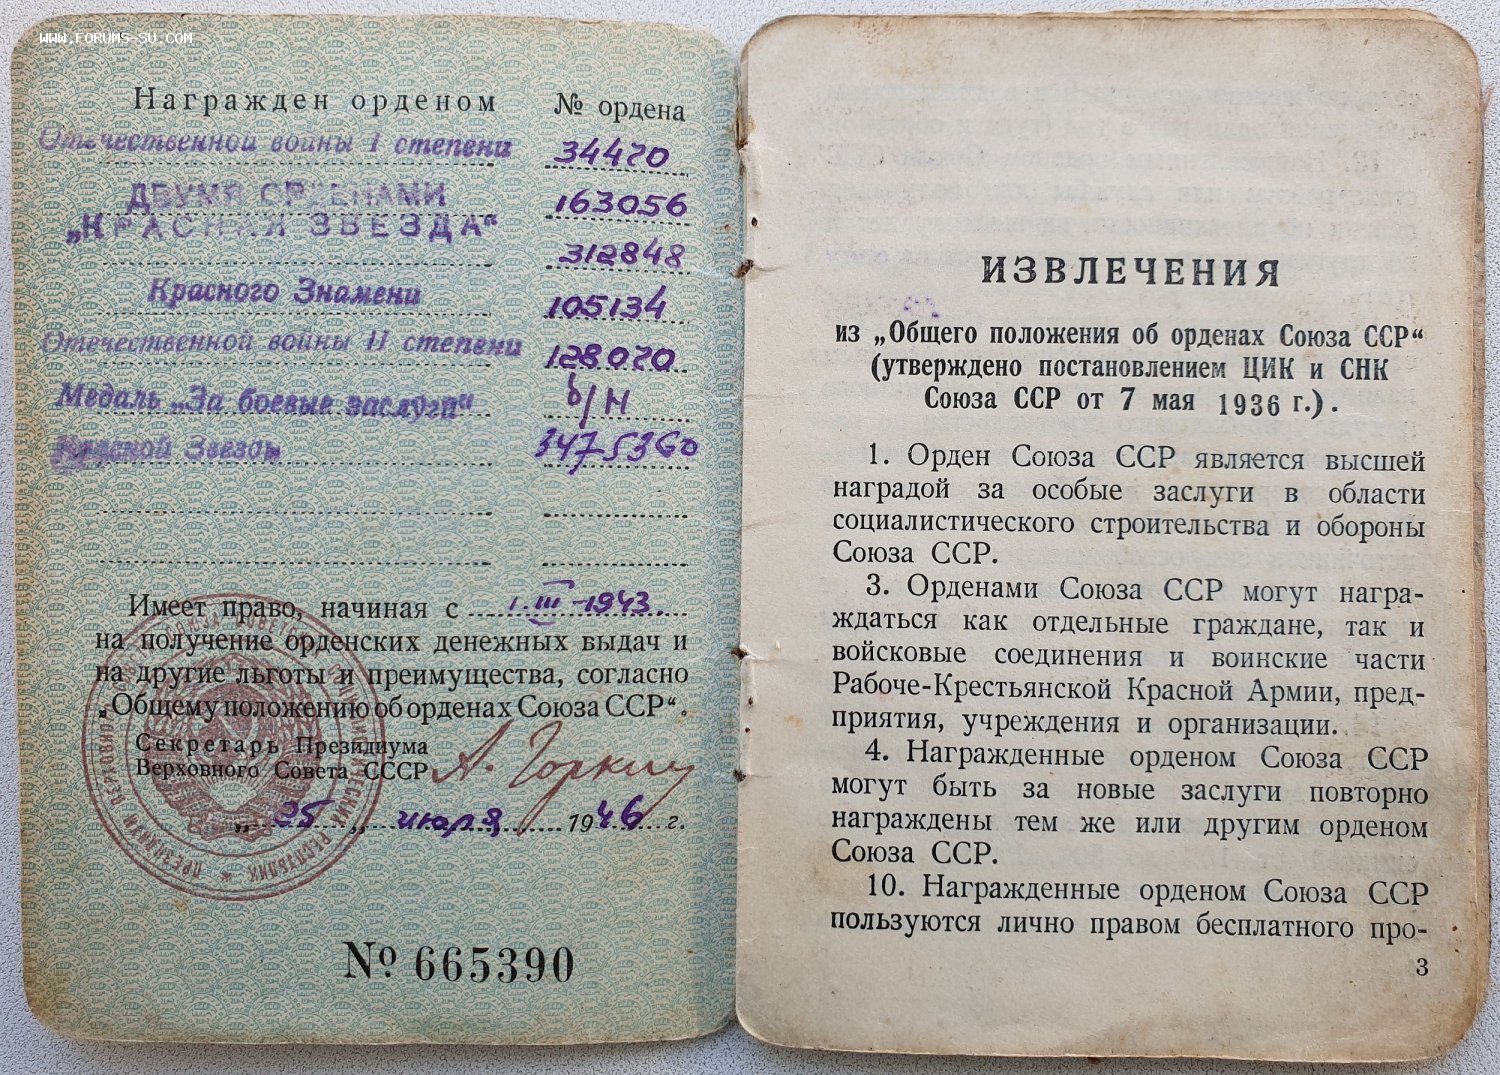 www.forums-su.com
Награжден орденом № ордена
Отечественной войны I степени 34420
ДВУМЯ ОРДЕНАМИ 163056
„КРАСНАЯ ЗВЕЗДА“
312848
Красного Знамени 105134
Отечественной войны II степени 128020
Медаль „За боевые заслуги“ б/н
Красной Звезды 3475360
Имеет право, начиная с 1.III-1943.
на получение орденских денежных выдач и
на другие льготы и преимущества, согласно
„Общему положению об орденах Союза ССР“.
Секретарь Президиума
Верховного Совета СССР А. Горкин
„25„ июля 1946 г.
№ 665390
ИЗВЛЕЧЕНИЯ
из „Общего положения об орденах Союза ССР“
(утверждено постановлением ЦИК и СНК
Союза ССР от 7 мая 1936 г.).
1. Орден Союза ССР является высшей
наградой за особые заслуги в области
социалистического строительства и обороны
Союза ССР.
3. Орденами Союза ССР могут награ-
ждаться как отдельные граждане, так и
войсковые соединения и воинские части
Рабоче-Крестьянской Красной Армии, пред-
приятия, учреждения и организации.
4. Награжденные орденом Союза ССР
могут быть за новые заслуги повторно
награждены тем же или другим орденом
Союза ССР.
10. Награжденные орденом Союза ССР
пользуются лично правом бесплатного про-
3